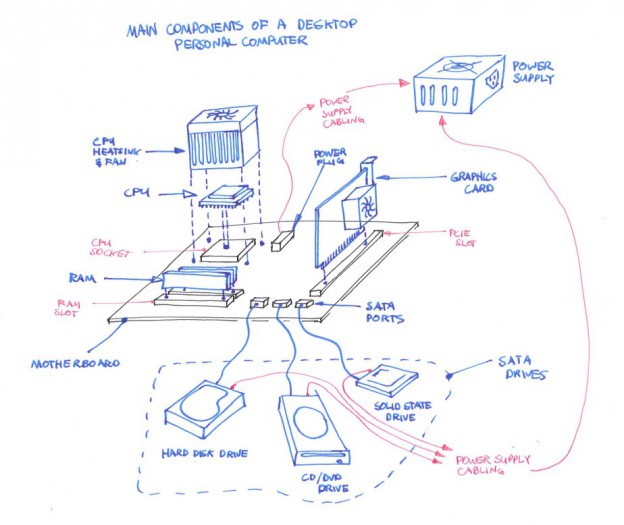 MAIN COMPONENTS OF A DESKTOP
PERSONAL COMPUTER
POWER
SUPPLY
POWER
SUPPLY
CABLING
CPU
HEATSINK
& FAN
POWER
PLUG
GRAPHICS
CARD
CPU
CPU
SOCKET
PCIE
SLOT
RAM
RAM
SLOT
SATA
PORTS
MOTHERBOARD
SATA
DRIVES
SOLID STATE
DRIVE
HARD DISK DRIVE
CD/DVD
DRIVE
POWER SUPPLY
CABLING